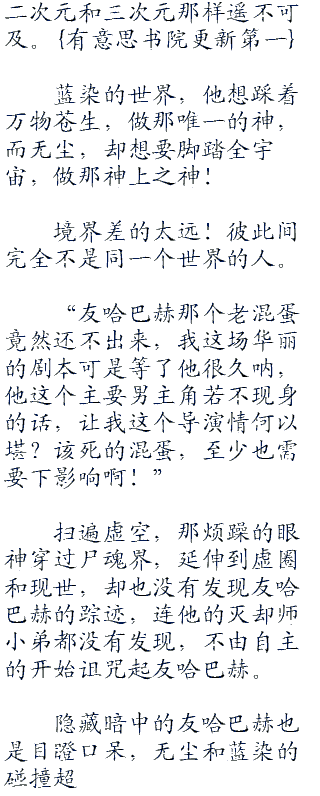 二次元和三次元那样遥不可
及。{有意思书院更新第一}
蓝染的世界，他想踩着
万物苍生，做那唯一的神，
而无尘，却想要脚踏全宇
宙，做那神上之神！
境界差的太远！彼此间
完全不是同一个世界的人。
“友哈巴赫那个老混蛋
竟然还不出来，我这场华丽
的剧本可是等了他很久呐，
他这个主要男主角若不现身
的话，让我这个导演情何以
堪？该死的混蛋，至少也需
要下影响啊！”
扫遍虚空，那烦躁的眼
神穿过尸魂界，延伸到虚圈
和现世，却也没有发现友哈
巴赫的踪迹，连他的灭却师
小弟都没有发现，不由自主
的开始诅咒起友哈巴赫。
隐藏暗中的友哈巴赫也
是目瞪口呆，无尘和蓝染的
碰撞超